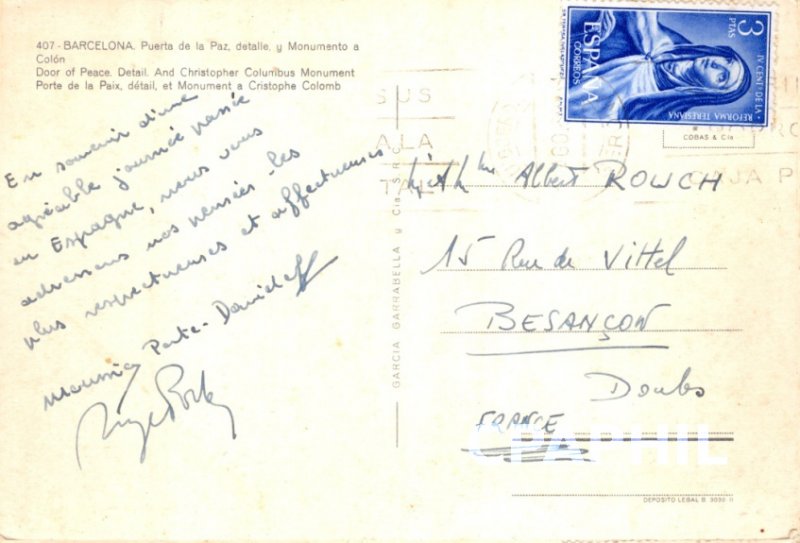 407 - BARCELONA. Puerta de la Paz, detalle, y Monumento a
Colón
Door of Peace. Detail. And Christopher Columbus Monument
Porte de la Paix, détail, et Monument a Cristophe Colomb
En souvenir d'une
agréable journée passée
en Espagne, nous vous
adressons nos pensées les
plus respectueuses et affectueuses
GARCIA GARRABELLA y Cia. S.R.C.
3
PTAS
IV CENT. DE LA
REFORMA TERESIANA
ESPAÑA
CORREOS
COBAS & Cía
Albert ROUCH
15 Rue de Vittel
BESANÇON
Doubs
FRANCE
DEPOSITO LEGAL B. 3030 II